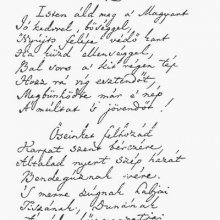 Isten áld meg a Magyart
Jó kedvvel, bőséggel,
Nyújts feléje védő kart
Ha küzd ellenséggel,
Bal sors a' kit régen tép
Hozz rá víg esztendőt,
Megbünhödte már a' nép
A' multat 's jövendőt!
Őseinket felhozád
Kárpát szent bérczére,
Általad nyert szép hazát
Bendegúznak vére.
'S merre zúgnak habjai
Tiszának, Dunának